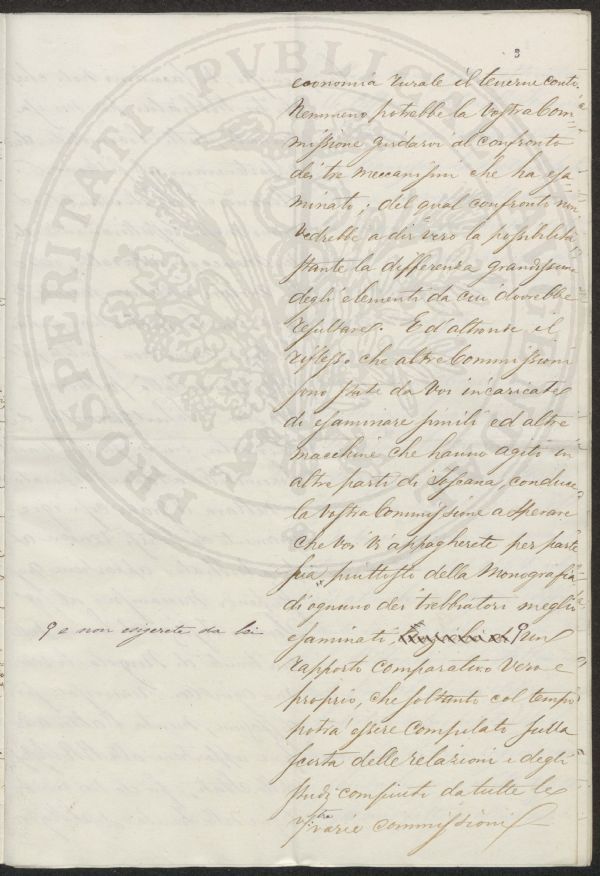 3
economia rurale il tenerne conto.
Nemmeno potrebbe la Vostra Com=
missione guidarvi al confronto
dei tre meccanismi che ha esa=
minato; del qual confronto non
vedrebbe a dir vero la possibilità
stante la differenza grandissima
degli elementi da cui dovrebbe
resultare. E d'altronde il
riflesso che altre Commissioni
sono state da Voi incaricate
di esaminare simili ed altre
macchine che hanno agito in
altre parti di Toscana, conduce
la Vostra Commissione a sperare
che Voi vi appagherete per parte
sua piuttosto della Monografia
di ognuno dei trebbiatori meglio
esaminati, un
e non esigerete da lei
rapporto comparativo vero e
proprio, che soltanto col tempo
potrà essere compilato sulla
scorta delle relazioni e degli
studi compiuti da tutte le
Vstre varie Commissioni
PROSPERITATI PVBLICAE